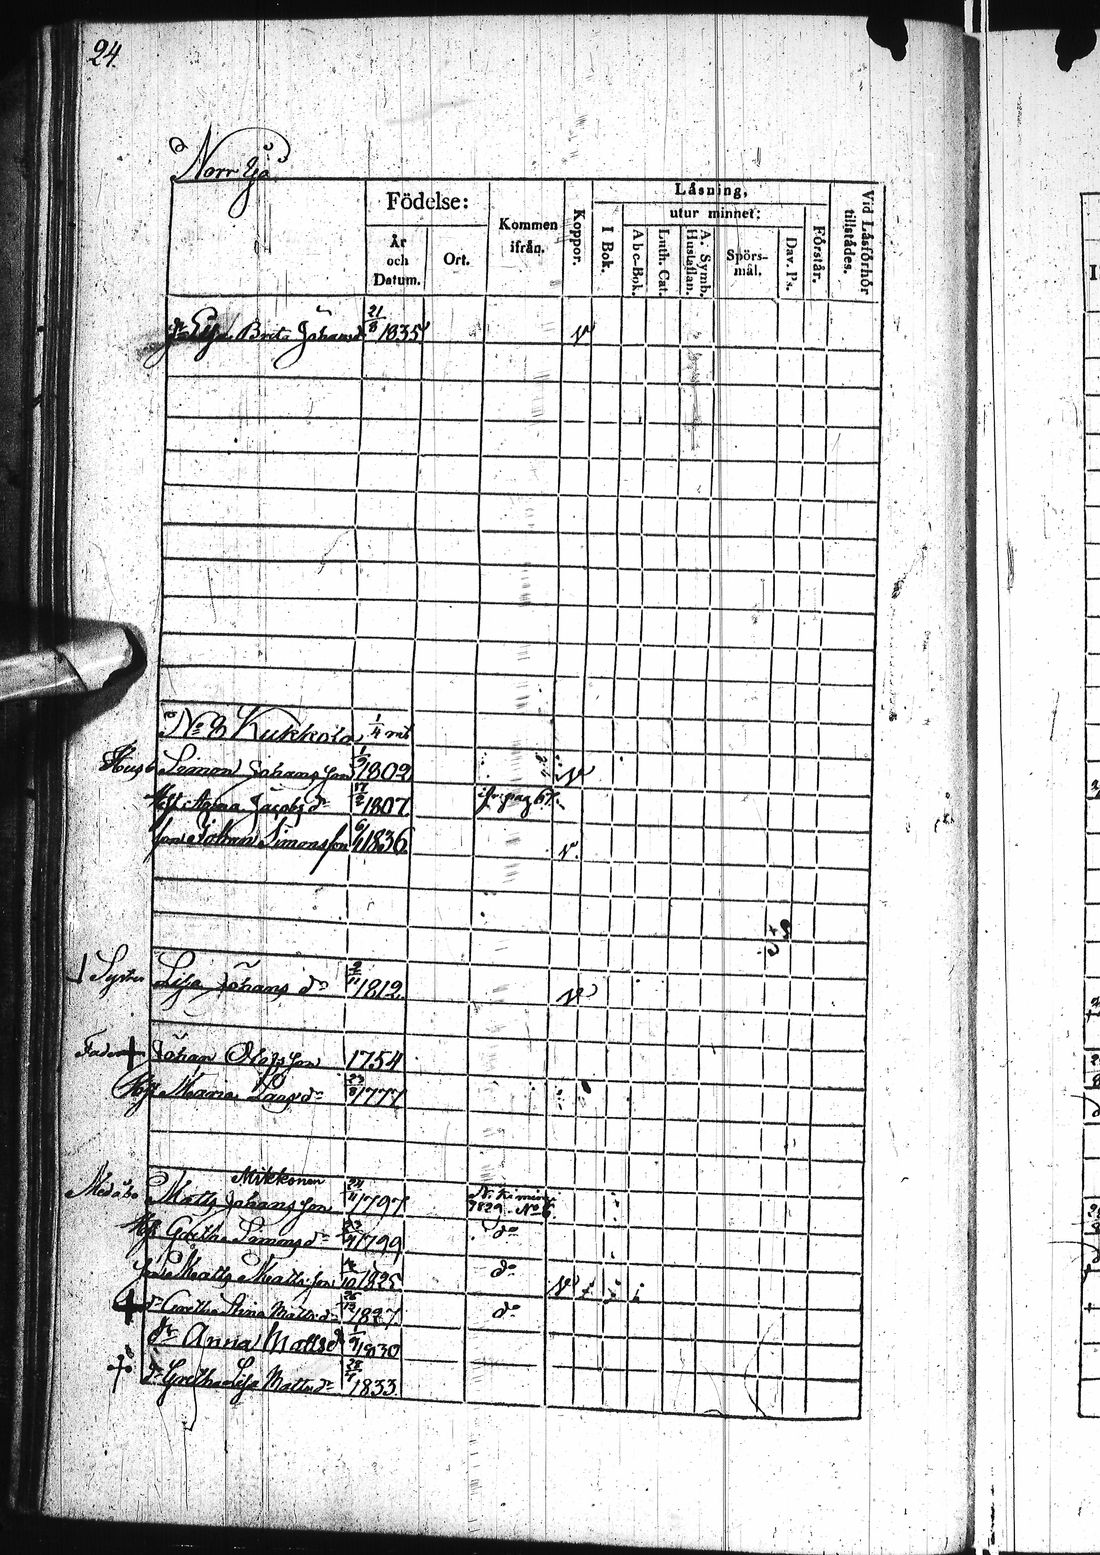 24.
Norr Ijo
Födelse:
År och Datum.
Ort.
Kommen ifrån.
Koppor.
Läsning,
I Bok.
utur minnet:
Abc-Bok.
Luth. Cat.
A. Symb. Hustaflan.
Spörs-mål.
Dav. Ps.
Förstår.
Vid Läsförhör tillstädes.
Brita Johansd 21/8 1835 v
No 8 Kukkola 1/4 mtl
Husb Simon Johansson 1/9 1802 v
Hust Anna Jacobsdr 17/2 1807 ifr. pag 67.
son Johan Simonsson 6/11 1836 v.
Syster Lisa Johans dr 1812 v
Fader Johan Olofsson 1754
Hu Maria Larsdr 23/8 1777
Mikkonen
Matts Johansson 24/11 1797 N. Kimin 1829. No 6.
Hu Gretha Simonsdr 1799 do
son Matts Mattsson 1825 do v
dr Gretha Stina Mattsdr 26/12 1827 do
dr Anna Mattsdr 1830
dr Gretha Lisa Mattsdr 1833.